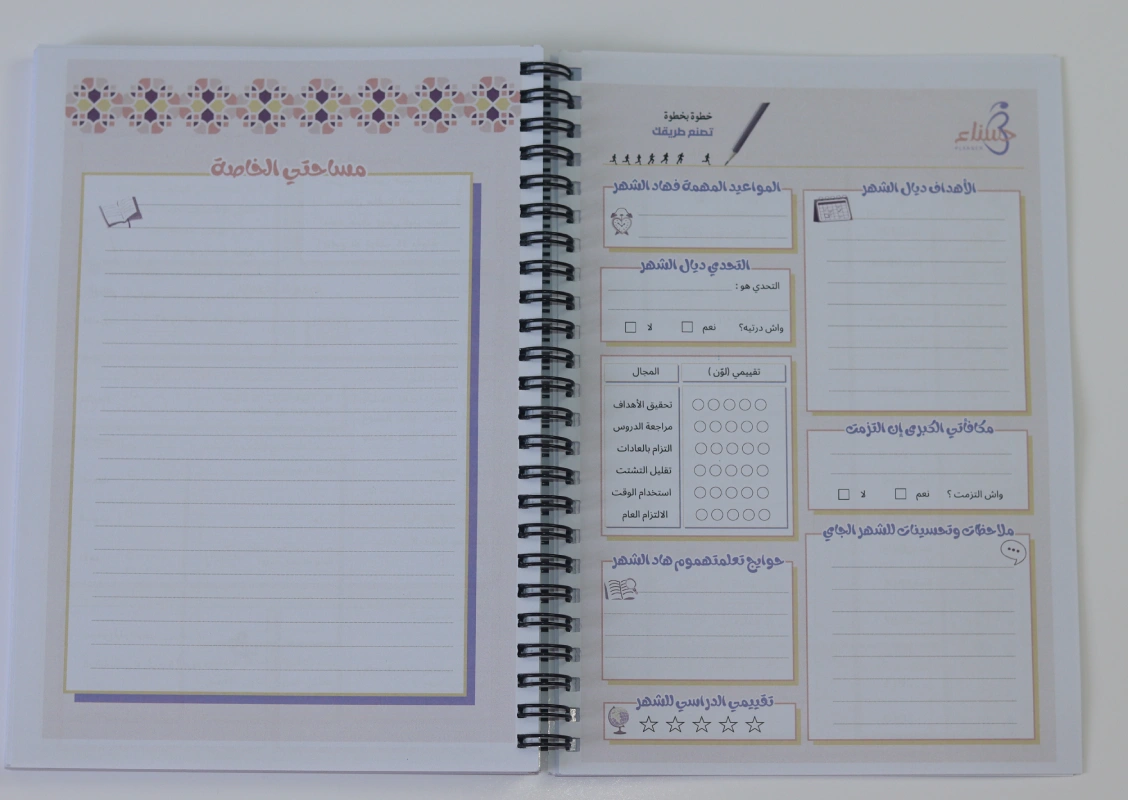 مساحتي الخاصة
خطوة بخطوة
تصنع طريقك
حسناء
PLANNER
الأهداف ديال الشهر
مكافأتي الكبرى إن التزمت
واش التزمت ؟ نعم لا
ملاحظات وتحسينات للشهر الجاي
المواعيد المهمة فهاد الشهر
التحدي ديال الشهر
التحدي هو :
واش درتيه؟ نعم لا
المجال تقييمي (لوّن )
تحقيق الأهداف
مراجعة الدروس
التزام بالعادات
تقليل التشتت
استخدام الوقت
الالتزام العام
حوايج تعلمتهموم هاد الشهر
تقييمي الدراسي للشهر